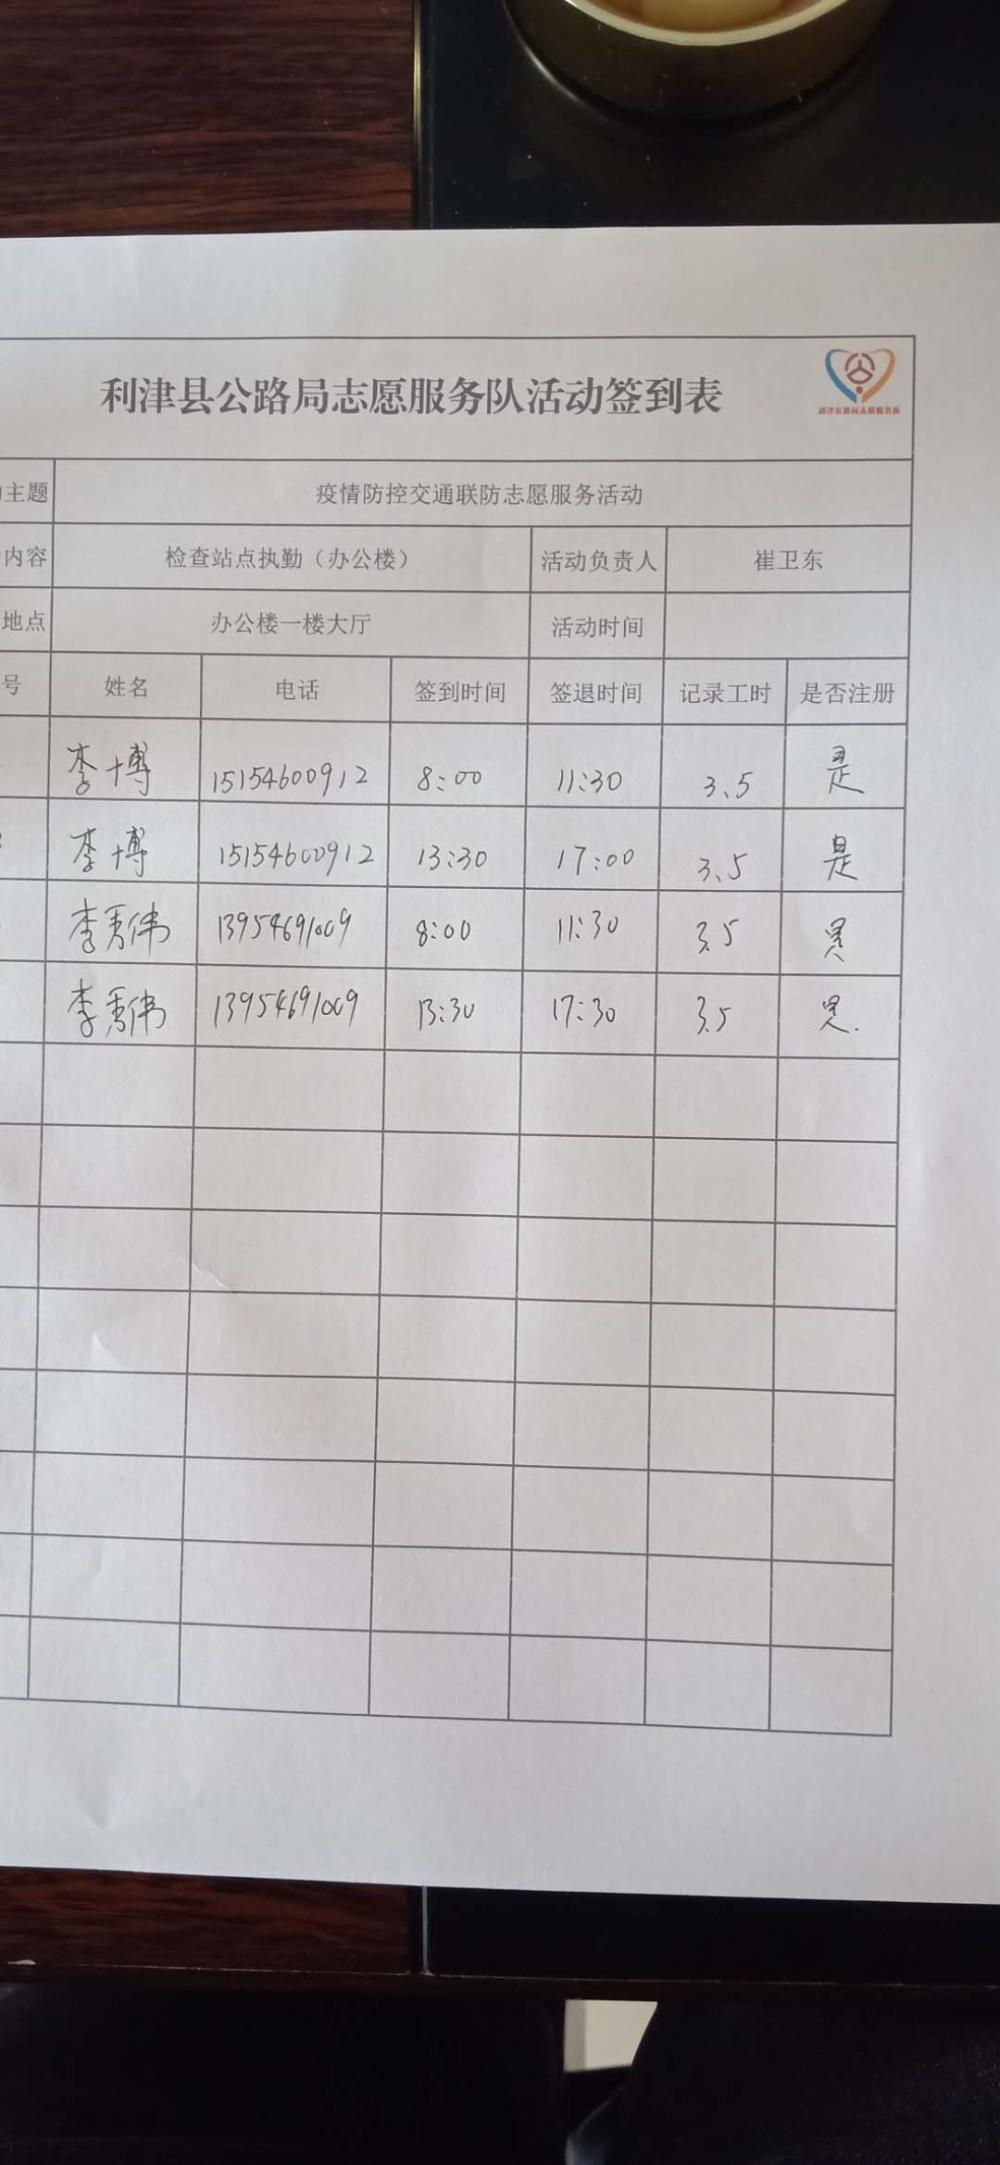 利津县公路局志愿服务队活动签到表
利津县公路局志愿服务队
主题 疫情防控交通联防志愿服务活动
内容 检查站点执勤（办公楼） 活动负责人 崔卫东
地点 办公楼一楼大厅 活动时间
号 姓名 电话 签到时间 签退时间 记录工时 是否注册
李博 15154600912 8:00 11:30 3.5 是
李博 15154600912 13:30 17:00 3.5 是
李秀伟 13954691009 8:00 11:30 3.5 是
李秀伟 13954691009 13:30 17:30 3.5 是.